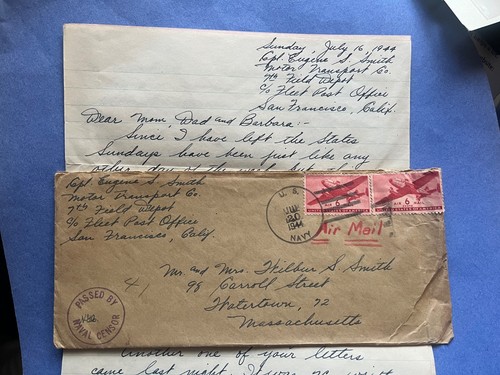 Sunday, July 16, 1944
Cpt. Eugene S. Smith
Motor Transport Co.
7th Field Depot
c/o Fleet Post Office
San Francisco, Calif.
Dear Mom, Dad and Barbara:-
Since I have left the States
Sundays have been just like any
other day of the week but
Cpt. Eugene S. Smith
Motor Transport Co.
7th Field Depot
c/o Fleet Post Office
San Francisco, Calif.
U.S.
JUL
20
1944
NAVY
AIR 6¢ MAIL
UNITED STATES OF AMERICA
AIR 6¢ MAIL
UNITED STATES OF AMERICA
Air Mail
Mr. and Mrs. Wilbur S. Smith
98 Carroll Street
Watertown, 72
Massachusetts
41
PASSED BY
NAVAL CENSOR
Another one of your letters
came last night.